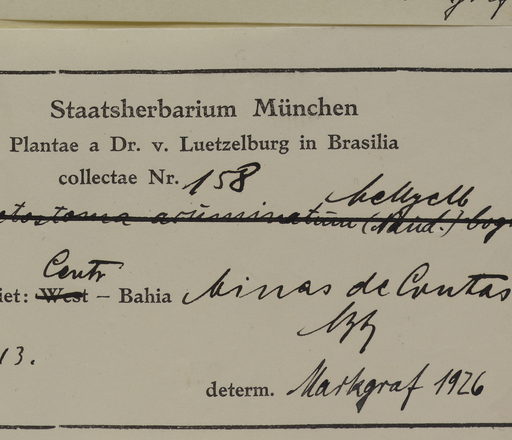 Staatsherbarium München
Plantae a Dr. v. Luetzelburg in Brasilia
collectae Nr. 158
acuminatum (Naud.) Cogn
Centr
iet: West – Bahia Minas de Contas
13.
determ. Markgraf 1926